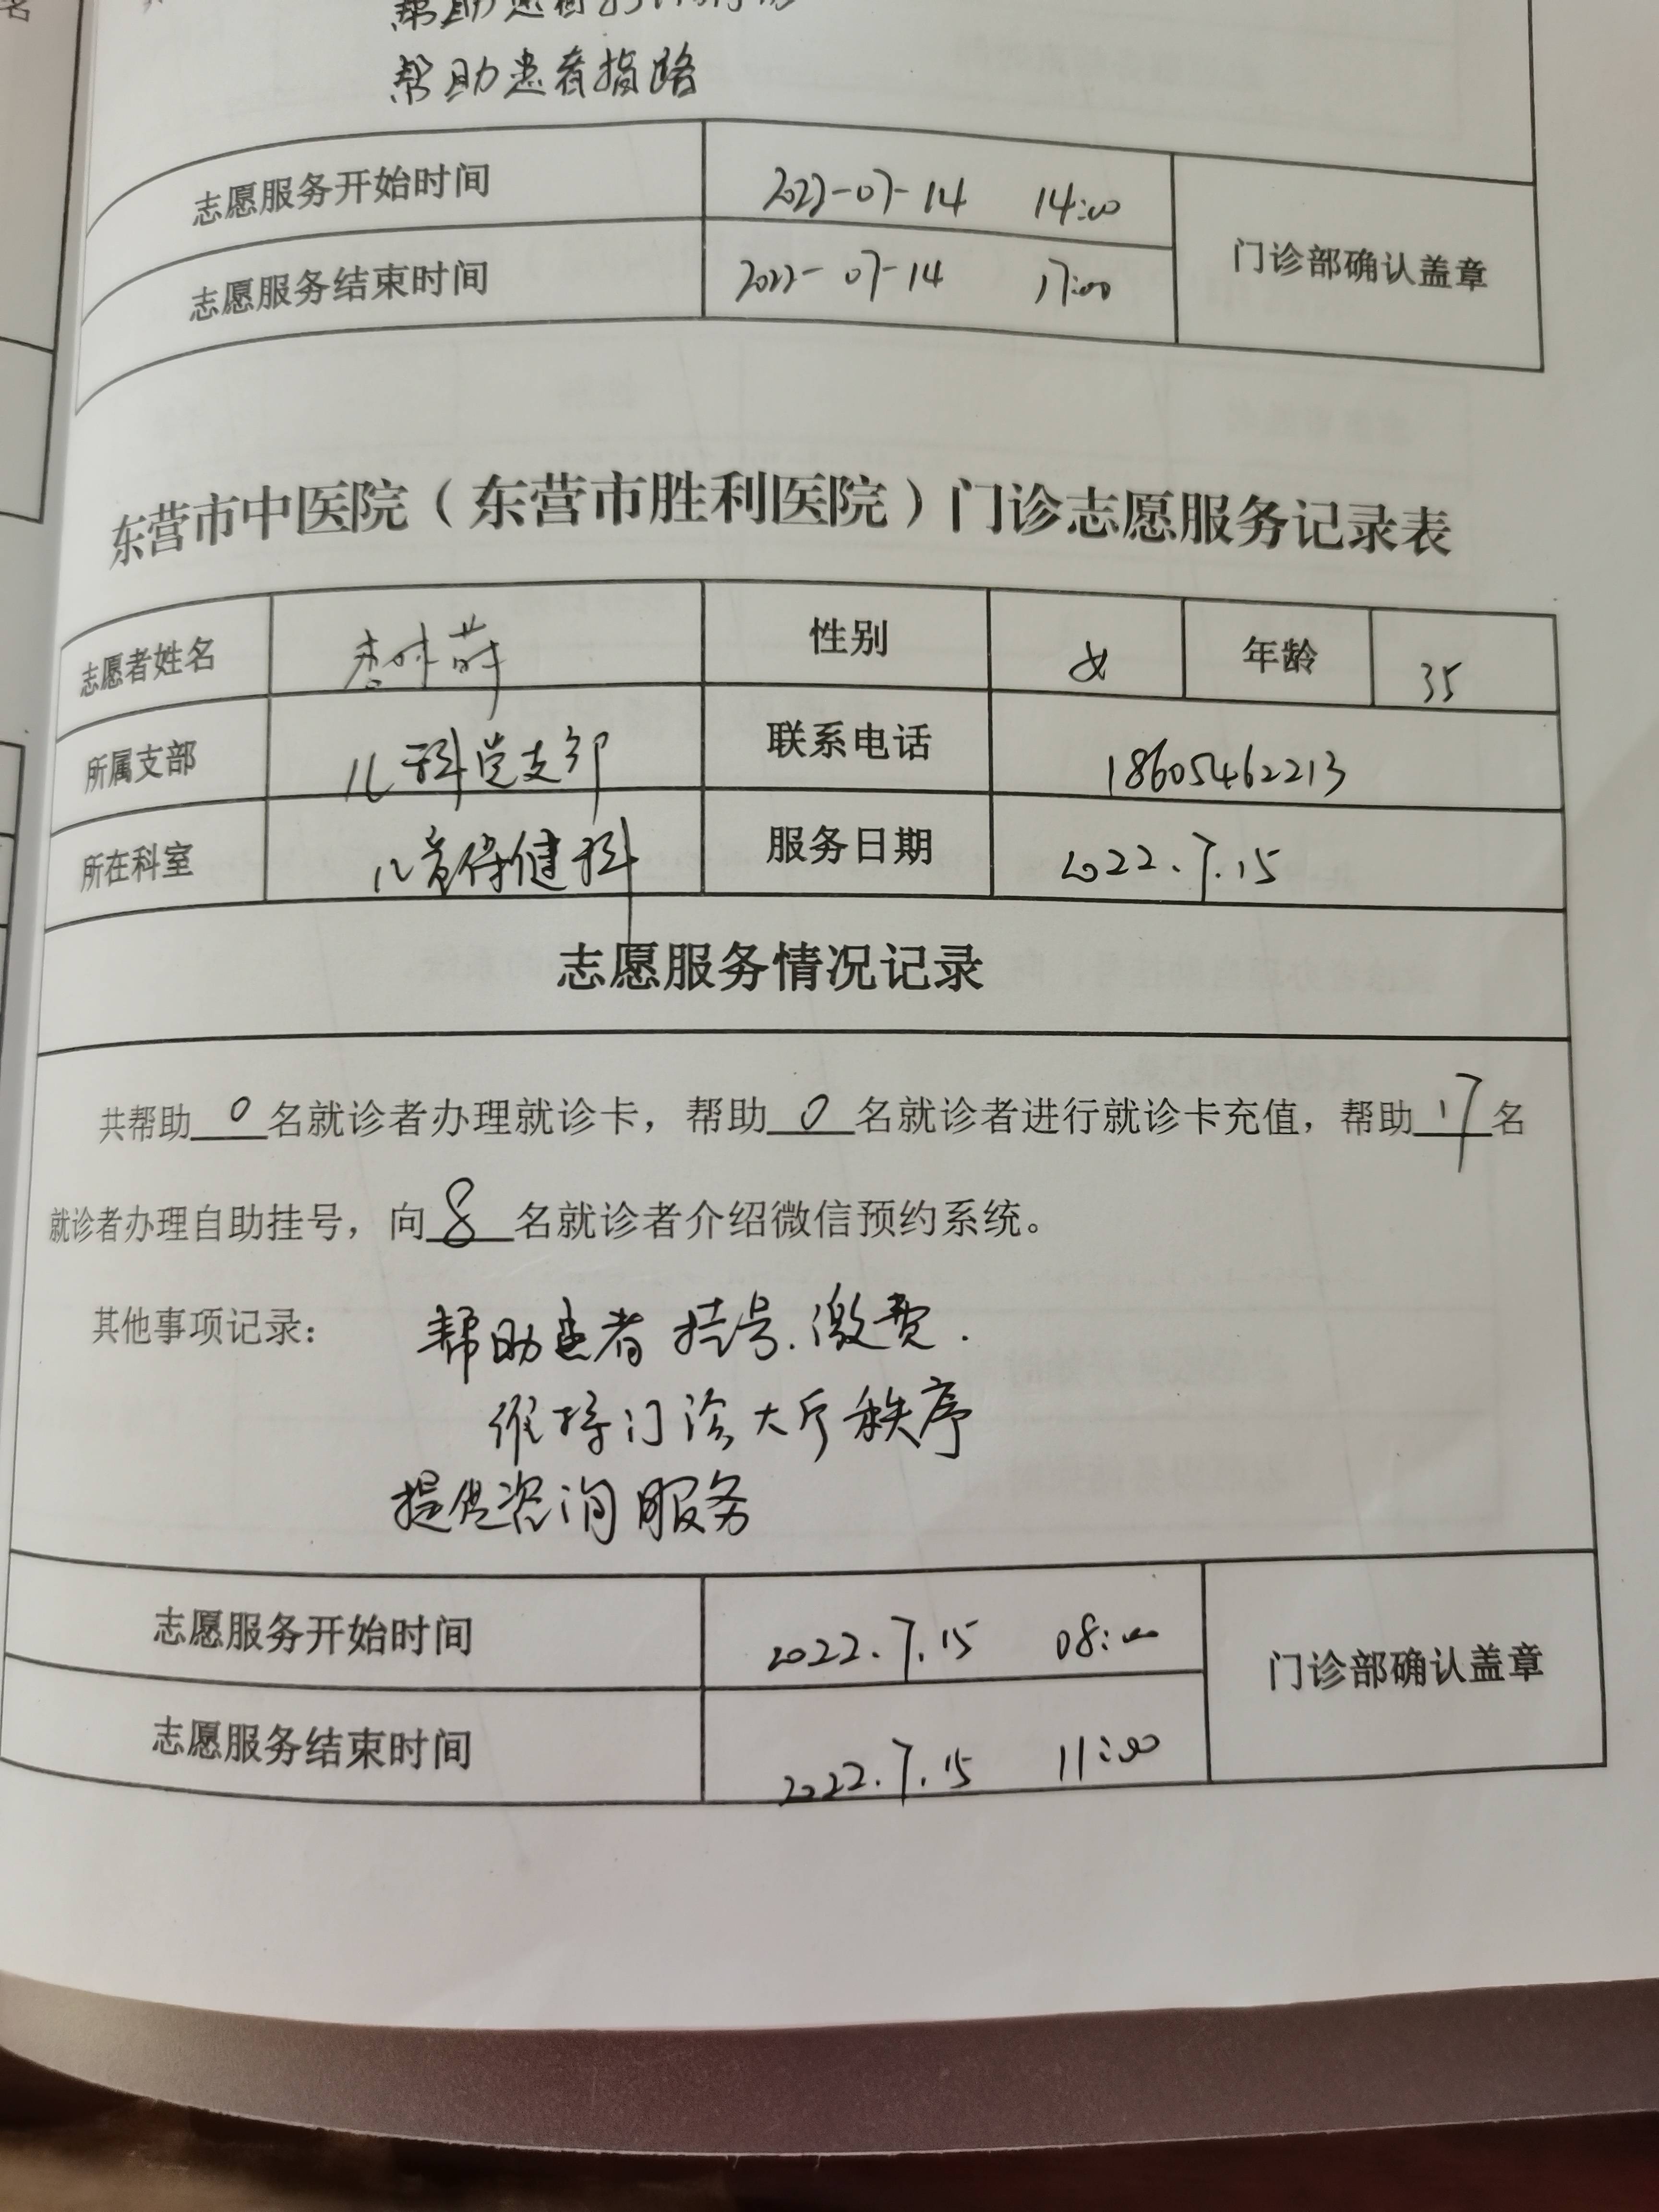 名
帮助患者
帮助患者指路
志愿服务开始时间 2022-07-14 14:00
志愿服务结束时间 2022-07-14 17:00
门诊部确认盖章
东营市中医院（东营市胜利医院）门诊志愿服务记录表
志愿者姓名 性别 女 年龄 35
所属支部 儿科党支部 联系电话 18605462213
所在科室 儿童保健科 服务日期 2022.7.15
志愿服务情况记录
共帮助 0 名就诊者办理就诊卡，帮助 0 名就诊者进行就诊卡充值，帮助 17 名
就诊者办理自助挂号，向 8 名就诊者介绍微信预约系统。
其他事项记录： 帮助患者挂号.缴费.
维持门诊大厅秩序
提供咨询服务
志愿服务开始时间 2022.7.15 08:00
志愿服务结束时间 2022.7.15 11:00
门诊部确认盖章